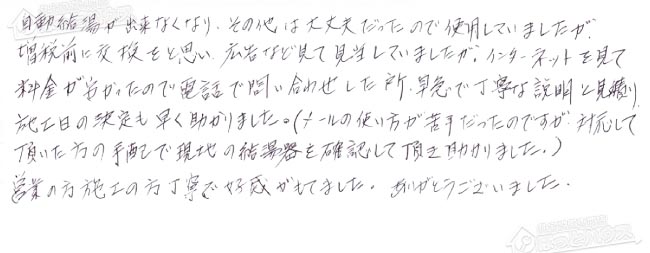 自動給湯が出来なくなり、その他は大丈夫だったので使用していましたが、
増税前に交換をと思い、広告など見て見当していましたが、インターネットを見て
料金が安かったので電話で問い合わせした所、早急で丁寧な説明と見積り
施工日の決定も早く助かりました。(メールの使い方が苦手だったのですが、対応して
頂いた方の手配で現地の給湯器を確認して頂き助かりました。)
営業の方施工の方丁寧で好感がもてました。ありがとうございました。